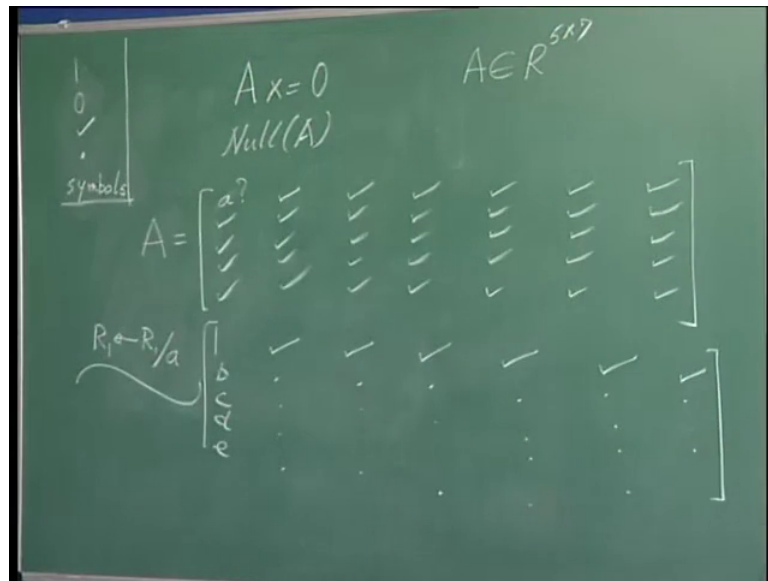 1
0
✓
.
symbols
Ax=0
A∈R^{5×7}
Null(A)
A = [ a? ✓ ✓ ✓ ✓ ✓ ✓
✓ ✓ ✓ ✓ ✓ ✓ ✓
✓ ✓ ✓ ✓ ✓ ✓ ✓
✓ ✓ ✓ ✓ ✓ ✓ ✓
✓ ✓ ✓ ✓ ✓ ✓ ✓ ]
R₁←R₁/a [ 1 ✓ ✓ ✓ ✓ ✓ ✓
b . . . . . .
c . . . . . .
d . . . . . .
e . . . . . . ]